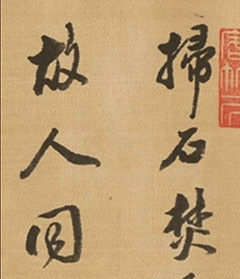 掃石焚
故人同